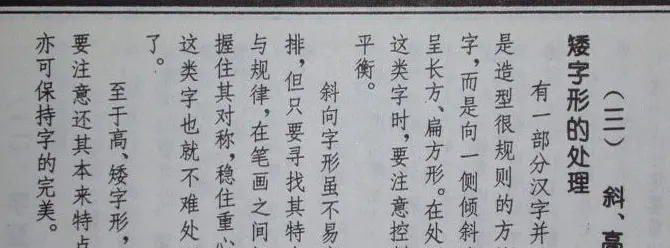 (三) 斜、高
矮字形的处理
有一部分汉字并
是造型很规则的方
字,而是向一侧倾斜
呈长方、扁方形。在处
这类字时,要注意控
平衡。
斜向字形虽不易
排,但只要寻找其特
与规律,在笔画之间
握住其对称,稳住重心
这类字也就不难处
了。
至于高、矮字形,
要注意还其本来特点
亦可保持字的完美。